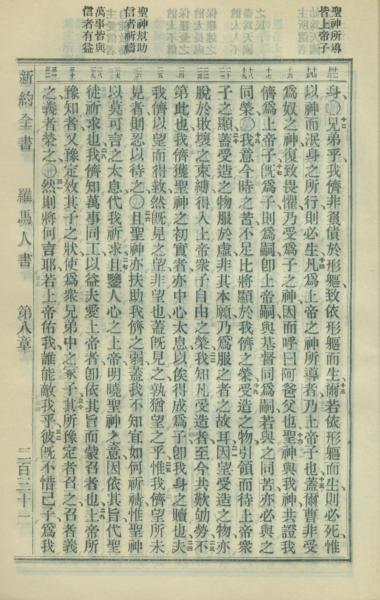 聖神所導
皆上帝子
聖神幫助
信者祈禱
萬事皆與
信者有益
身兄弟乎我儕非負債於形軀致依形軀而生爾若依形軀而生則必死惟
以神而泯身之所行則必生凡爲上帝之神所導者乃上帝子也蓋爾曹非受
爲奴之神復致畏懼乃受爲子之神因而呼曰阿爸父也聖神與我神共證我
儕爲上帝子旣爲子則爲嗣卽上帝嗣與基督同爲嗣若與之同苦亦必與之
同榮我意今時之苦不足比將顯於我儕之榮受造之物引領而待上帝衆
子之顯蓋受造之物服於虛非其本願乃爲服之者之故耳因望受造之物亦
脫於敗壞之束縛得入上帝衆子自由之榮我知凡受造者至今共歎劬勞不
第此也我儕獲聖神之初實者亦中心太息以俟得成爲子卽我身之贖也夫
我儕以望而得救然旣見之望非望也蓋旣見之孰猶望之乎惟我儕望所未
見者則忍以待之且聖神亦扶助我儕之弱蓋我不知宜如何祈禱惟聖神
以莫可言之太息代我祈求且鑒人心之上帝明曉聖神之意因依其旨代聖
徒祈求也我儕知萬事同工以益夫愛上帝者卽依其旨而蒙召者也上帝所
豫知者又豫定效其子之狀使爲衆兄弟中之冢子其所豫定者召之召者義
之義者榮之然則將何言耶若上帝佑我誰能敵我乎彼旣不惜己子爲我
新約全書 羅馬人書 第八章 二百三十一